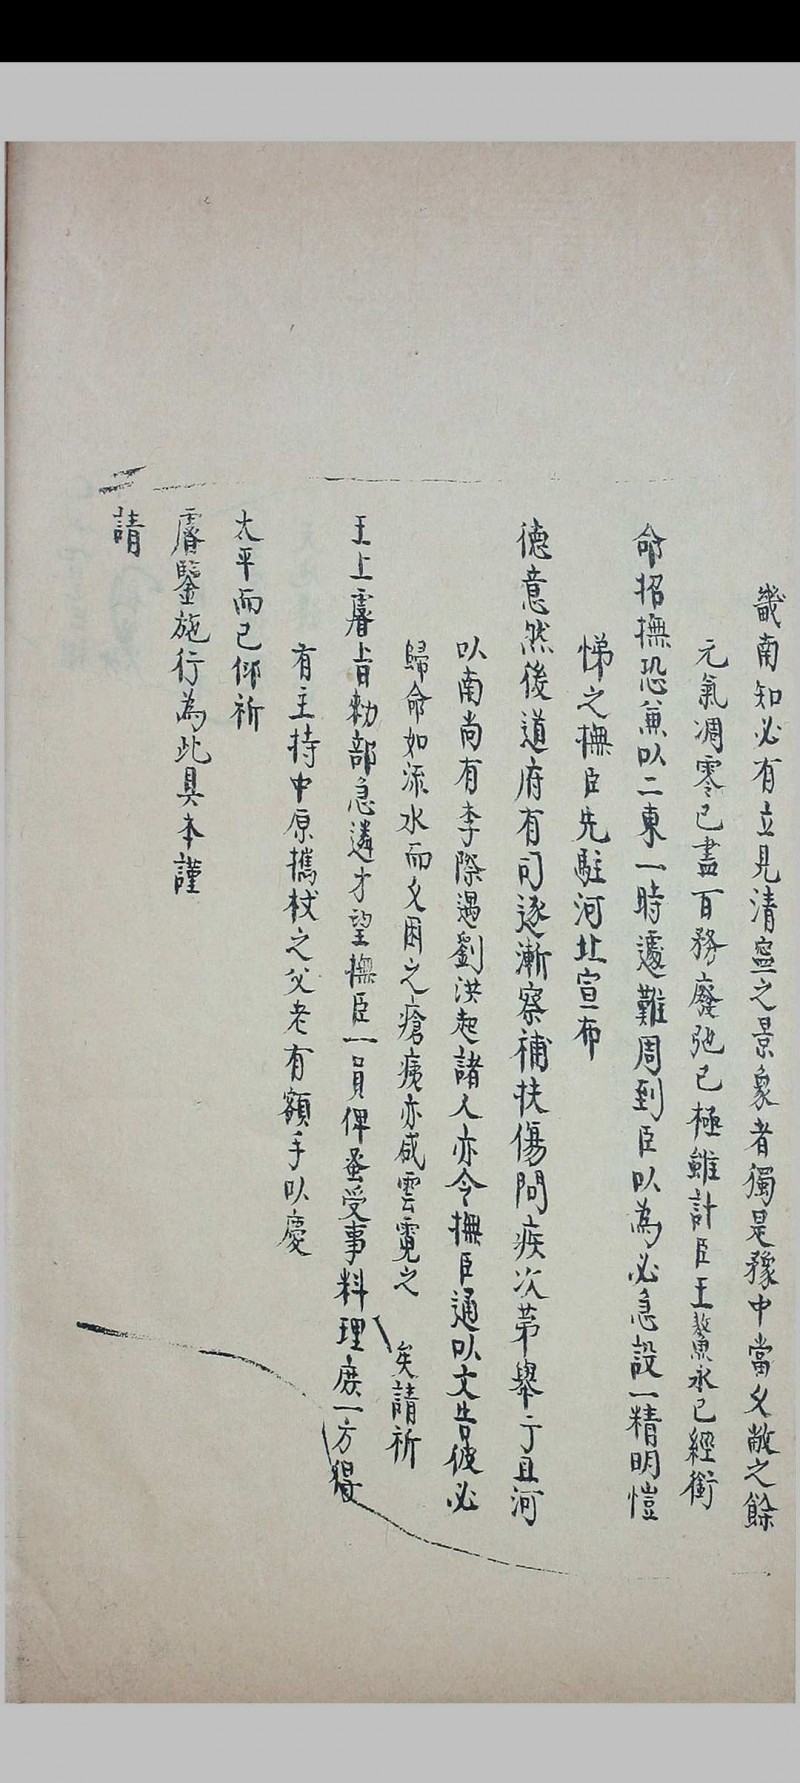 畿南知必有立見清寧之景象者獨是豫中當久敝之餘
元氣凋零已盡百務廢弛已極雖計臣王鰲永已經銜
命招撫恐兼以二東一時遽難周到臣以為必急設一精明愷
悌之撫臣先駐河北宣布
德意然後道府有司逐漸察補扶傷問疾次第舉行且河
以南尚有李際遇劉洪起諸人亦令撫臣通以文告彼必
歸命如流水而久困之瘡痍亦咸雲霓之 矣請祈
王上睿旨勅部急遴才望撫臣一員俾蚤受事料理庶一方得
有主持中原攜杖之父老有額手以慶
太平而已仰祈
睿鑒施行為此具本謹
請